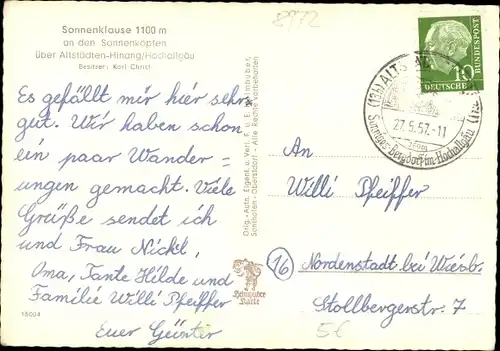 Sonnenklause 1100 m
an den Sonnenköpfen
über Altstädten-Hinang/Hochallgäu
Besitzer: Karl Christ
8972
Es gefällt mir hier sehr
gut. Wir haben schon
ein paar Wander=
ungen gemacht. Viele
Grüße sendet ich
und Frau Nickl,
Oma, Tante Hilde und
Familie Willi Pfeiffer
Euer Günter
18004
Orig.-Aufn. Eigent. u. Verl. F. u. E. Heimhuber,
Sonthofen - Oberstdorf - Alle Rechte vorbehalten
Heimhuber
Karte
DEUTSCHE BUNDESPOST
10
27.5.57.-11
Sonniges Bergdorf im Hochallgäu
An
Willi Pfeiffer
(16) Nordenstadt bei Wiesb.
Stollbergerstr. 7
5€